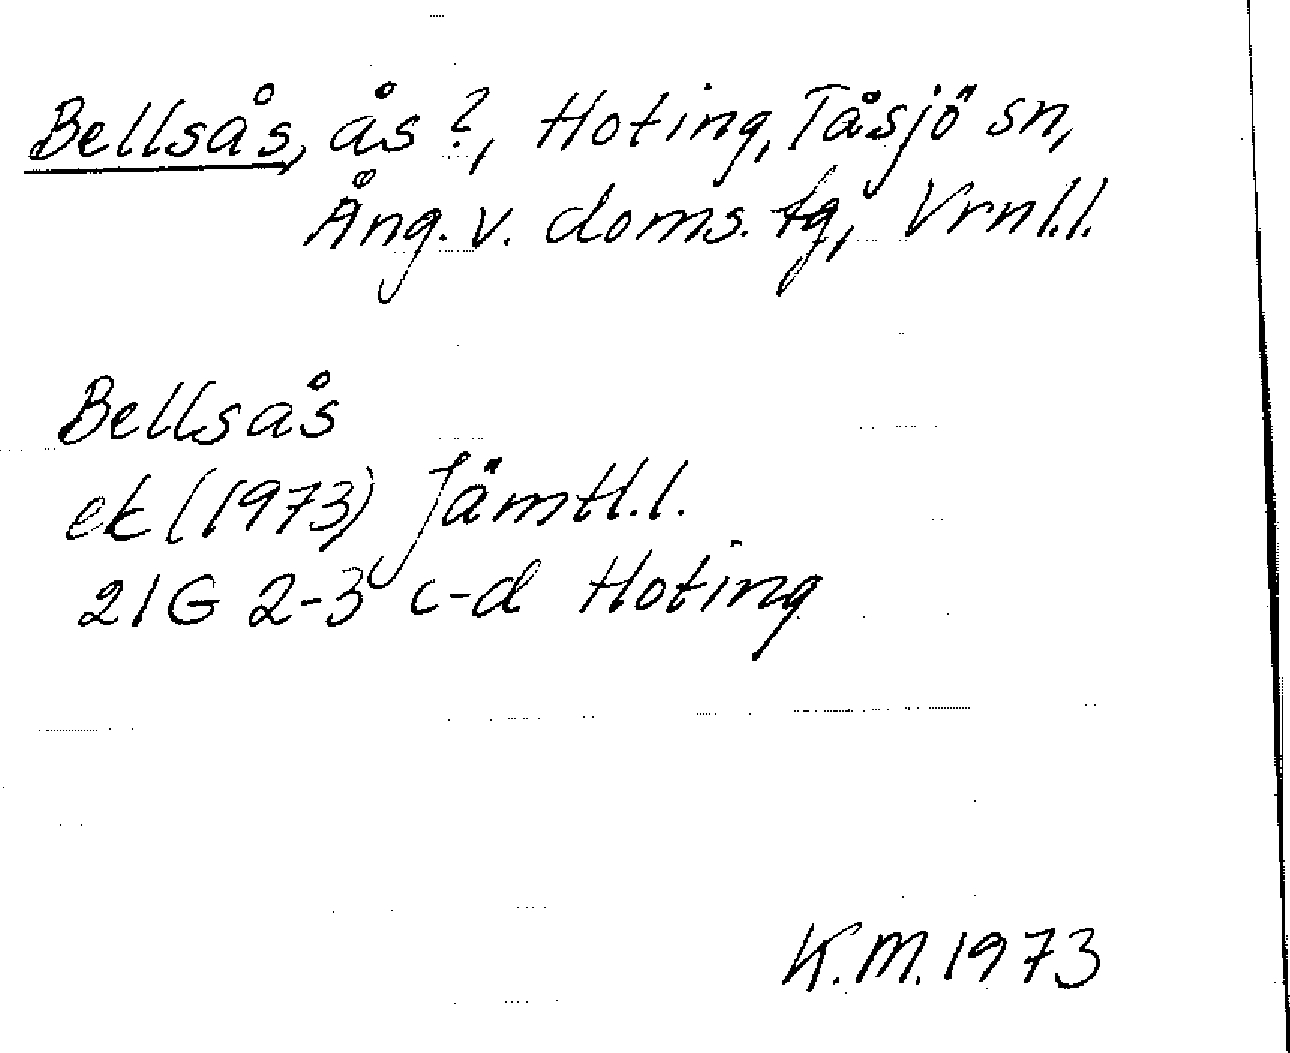 Bellsås, ås?, Hoting, Tåsjö sn,
Ång. v. doms. tg, Vrnl.l.
Bellsås
ek (1973) Jämtl.l.
21G 2-3 c-d Hoting
K.M. 1973